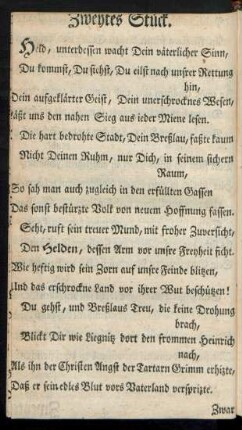 Zweytes Stück.
Held, unterdessen wacht Dein väterlicher Sinn,
Du kommst, Du siehst, Du eilst nach unsrer Rettung
hin,
Dein aufgeklärter Geist, Dein unerschrocknes Wesen,
Läßt uns den nahen Sieg aus jeder Miene lesen.
Die hart bedrohte Stadt, Dein Breßlau, faßte kaum
Nicht Deinen Ruhm, nur Dich, in seinem sichern
Raum,
So sah man auch zugleich in den erfüllten Gassen
Das sonst bestürzte Volk von neuem Hoffnung fassen.
Seht, ruft sein treuer Mund, mit froher Zuversicht,
Den Helden, dessen Arm vor unsre Freyheit ficht.
Wie heftig wird sein Zorn auf unsre Feinde blitzen,
Und das erschrockne Land vor ihrer Wut beschützen!
Du gehst, und Breßlaus Treu, die keine Drohung
brach,
Blickt Dir wie Liegnitz dort den frommen Heinrich
nach,
Als ihn der Christen Angst der Tartarn Grimm erhitzte,
Daß er sein edles Blut vors Vaterland versprizte.
Zwar